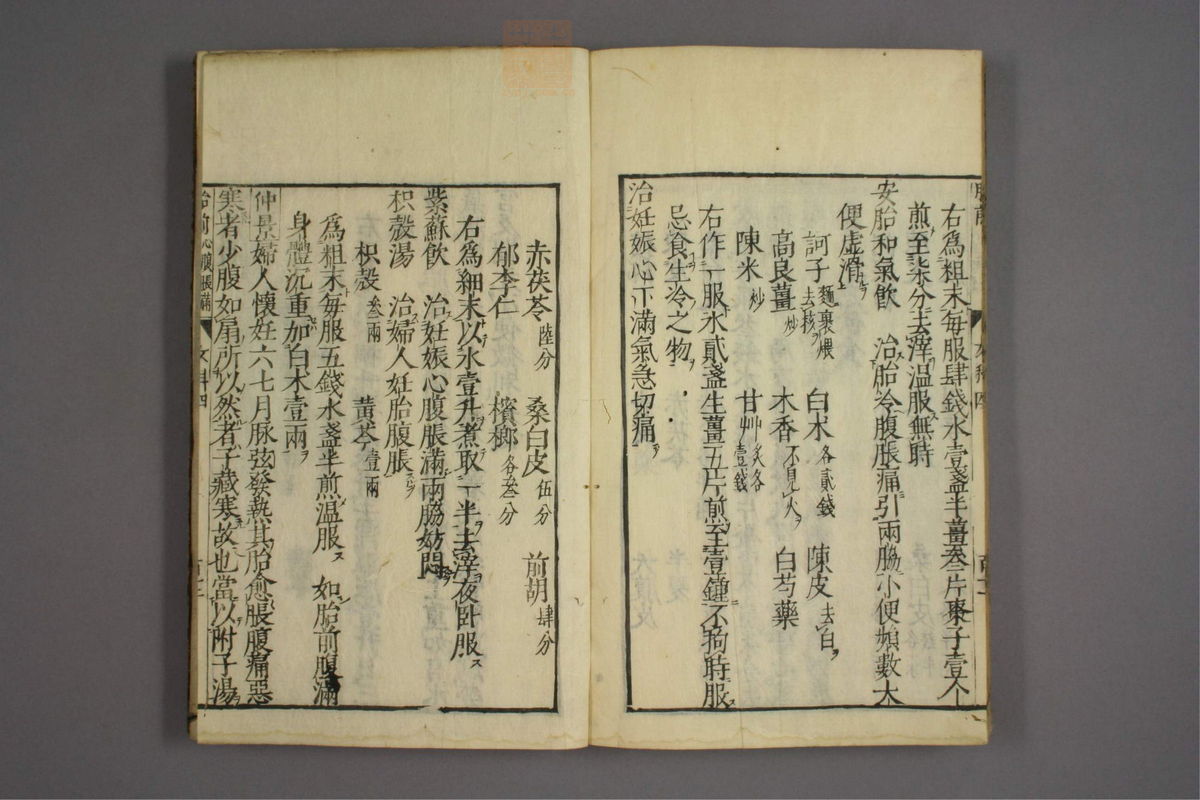 右爲粗末每服肆錢水壹盞半薑叁片棗子壹个
煎至柒分去滓温服無時
安胎和氣飲　治胎冷腹脹痛引兩脇小便頻數大
便虚滑
訶子麵裹煨去核　白朮各貳錢　陳皮去白
高良薑炒　木香不見火　白芍藥
陳米炒　甘艸炙各壹錢
右作一服水貳盞生薑五片煎至壹鍾不拘時服
忌食生冷之物
治妊娠心下滿氣急切痛
赤茯苓陸分　桑白皮伍分　前胡肆分
郁李仁　檳榔各叁分
右爲細末以水壹升煮取一半去滓夜卧服
紫蘇飲　治妊娠心腹脹滿兩脇妨悶
枳殼湯　治婦人妊胎腹脹
枳殼叁兩　黄芩壹兩
爲粗末每服五錢水盞半煎温服　如胎前腹滿
身體沉重加白朮壹兩
仲景婦人懷妊六七月脉弦發熱其胎愈脹腹痛惡
寒者少腹如扇所以然者子藏寒故也當以附子湯